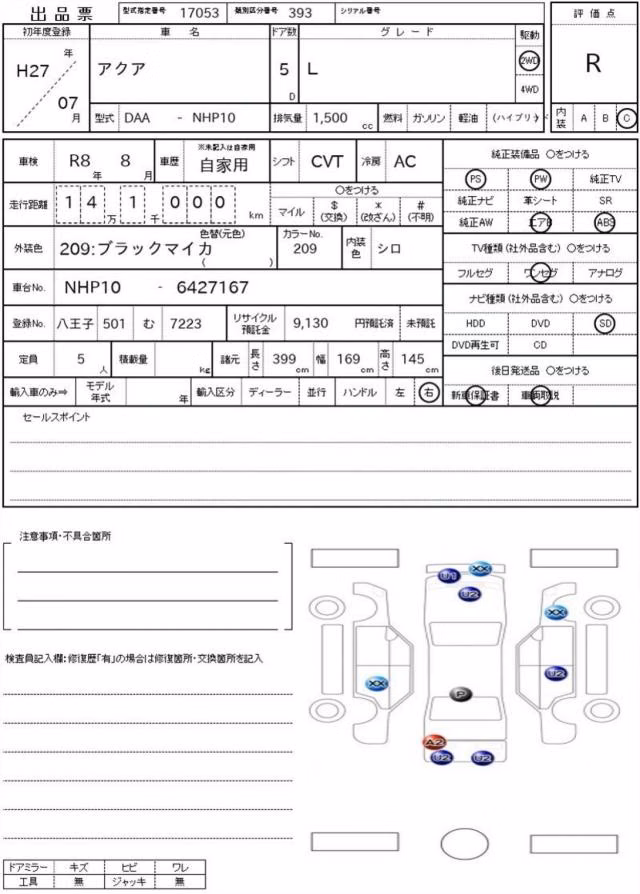 出品票 型式指定番号 17053 類別区分番号 393 シリアル番号
評価点
初年度登録 車名 ドア数 グレード 駆動
H27 年 07 月 アクア 5 D L 2WD 4WD
R
型式 DAA - NHP10 排気量 1,500 cc 燃料 ガソリン 軽油 (ハイブリッド
内装 A B C
車検 R8 年 8 月 車歴 ※未記入は自家用 自家用 シフト CVT 冷房 AC
純正装備品 〇をつける
PS PW 純正TV
純正ナビ 革シート SR
純正AW エアB ABS
走行距離 1 4 万 1 千 0 0 0 km
〇をつける
マイル $ (交換) * (改ざん) # (不明)
外装色 色替(元色) 209:ブラックマイカ ( ) カラーNo. 209 内装色 シロ
TV種類(社外品含む) 〇をつける
フルセグ ワンセグ アナログ
車台No. NHP10 - 6427167
ナビ種類(社外品含む) 〇をつける
HDD DVD SD
DVD再生可 CD
登録No. 八王子 501 む 7223 リサイクル預託金 9,130 円預託済 未預託
定員 5 人 積載量 kg 諸元 長さ 399 cm 幅 169 cm 高さ 145 cm
後日発送品 〇をつける
新車保証書 車両取説
輸入車のみ⇒ モデル年式 年 輸入区分 ディーラー 並行 ハンドル 左 右
セールスポイント
注意事項・不具合箇所
検査員記入欄:修復歴「有」の場合は修復箇所・交換箇所を記入
U1 XX
U2
XX
XX U2
P
A2
U2 U2
ドアミラー キズ ヒビ ワレ
工具 無 ジャッキ 無